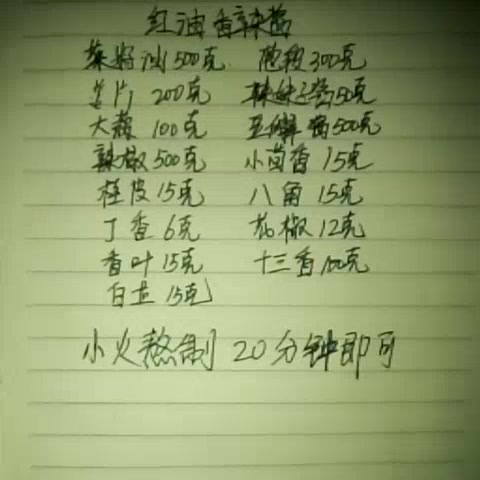 红油香辣酱
菜籽油500克 葱段300克
姜片 200克 辣妹子酱50克
大蒜 100克 豆瓣酱500克
辣椒500克 小茴香 15克
桂皮15克 八角 15克
丁香 6克 花椒12克
香叶15克 十三香100克
白芷 15克
小火熬制 20分钟即可